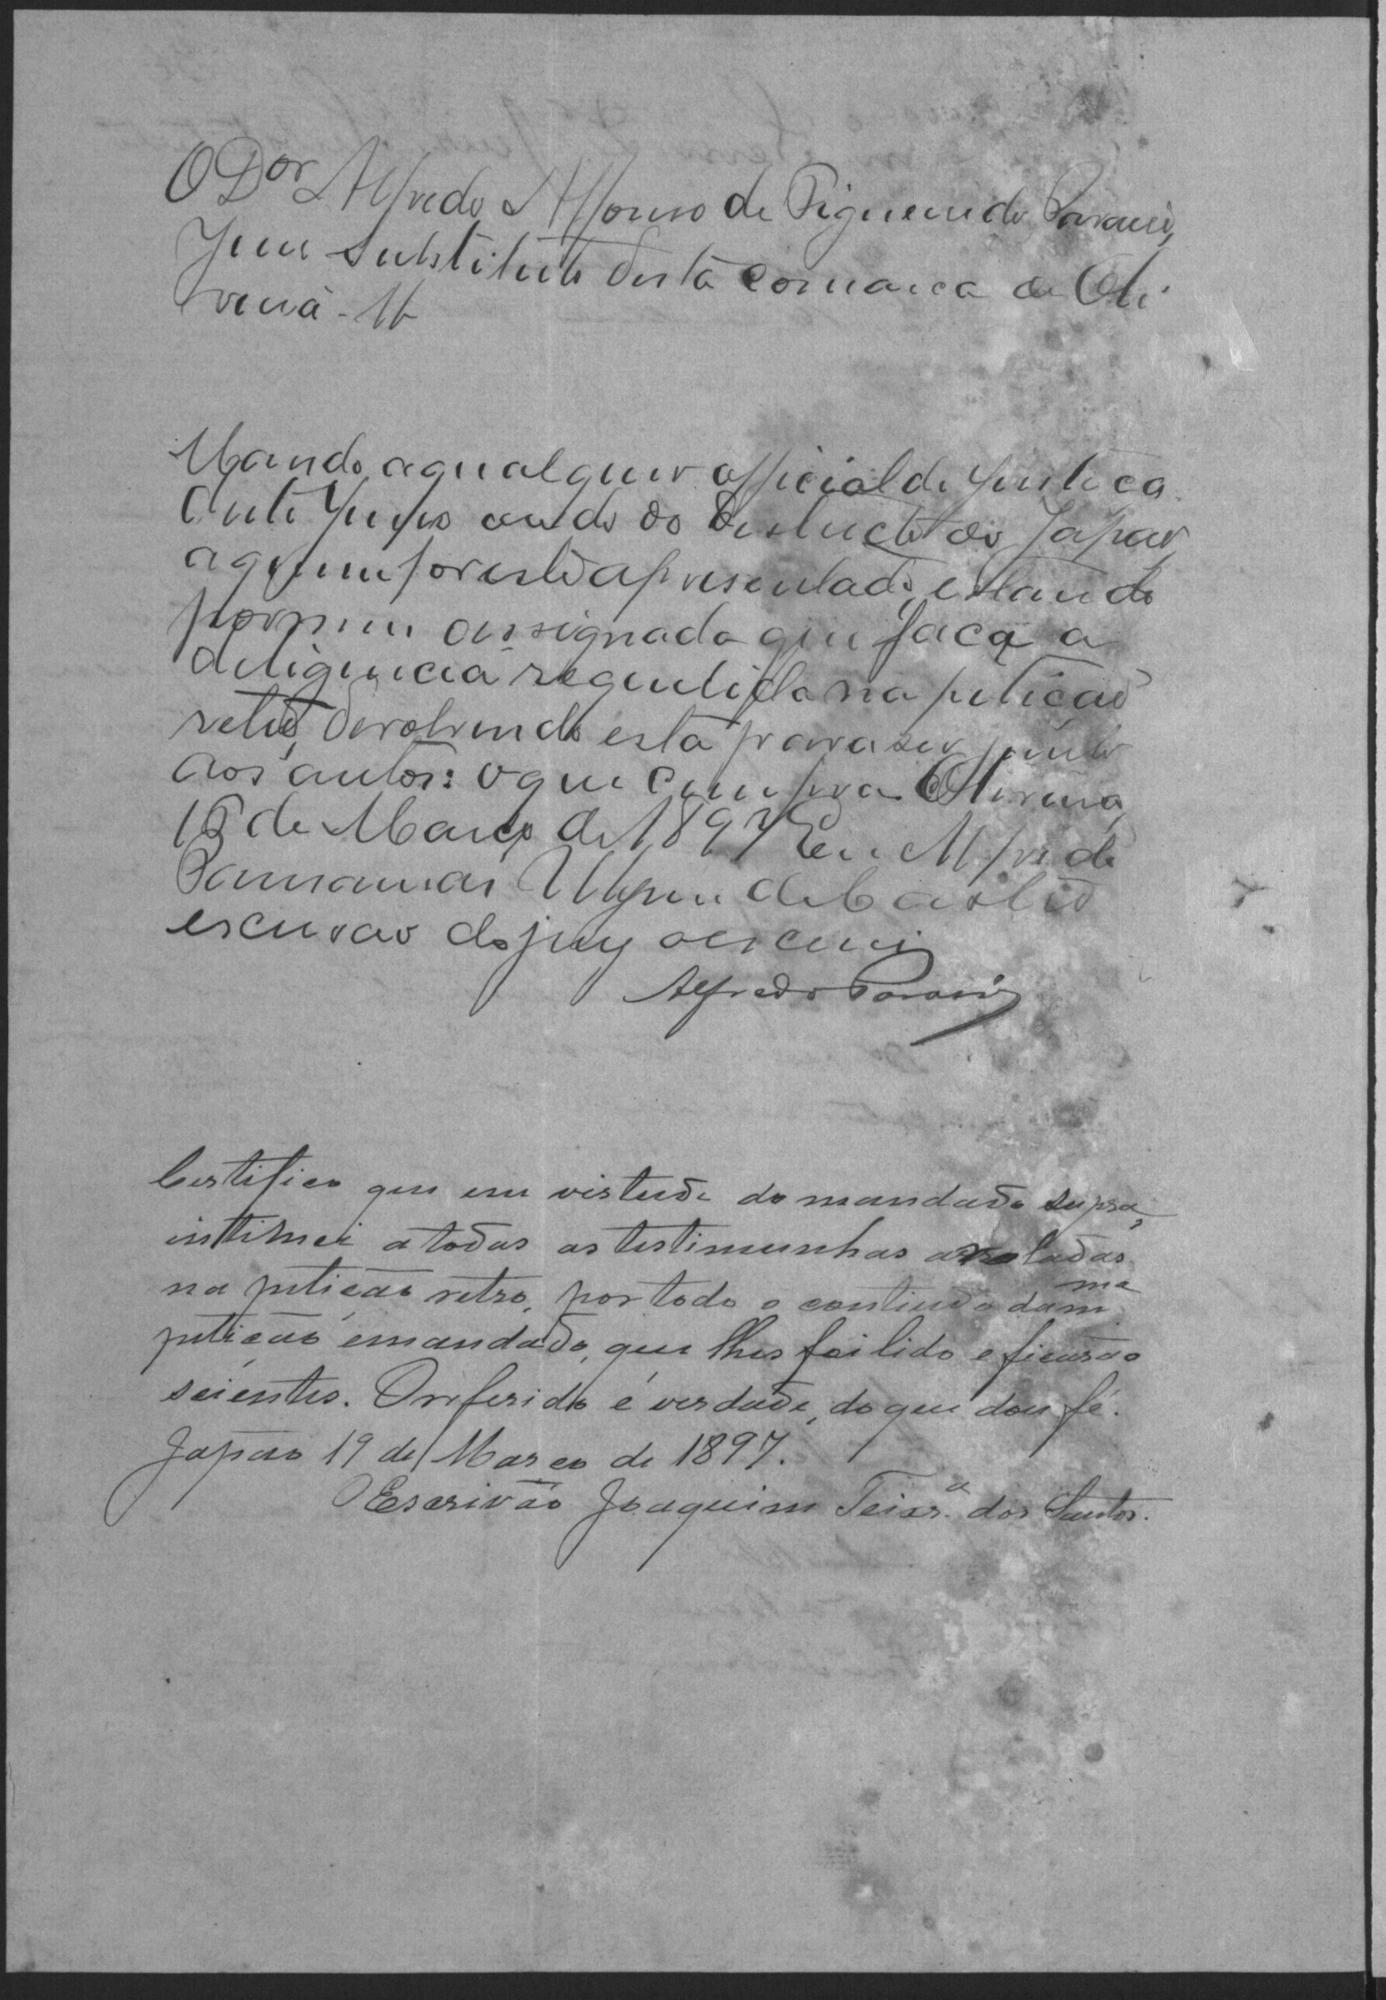 O Dor Alfredo Affonso de Figueiredo Paraiso,
Juiz Substituto desta comarca de Oli
veira -
Mando a qualquer official de Justiça
deste Juizo ou do do Destricto do Japão
a quem for este apresentado, estando
por mim assignado que faça a
diligencia requerida na petição
retro, devolvendo esta para ser junto
aos autos: o que cumpra. Oliveira,
16 de Março de 1897 Eu Alfredo
de Castro
escrivão do juizo o escrevi
Alfredo Paraiso
Certifico que em virtude do mandado supra,
intimei a todas as testimunhas aroladas
na petição retro, por todo o contiudo da mma
petição e mandado, que lhes foi lido e ficarão
scientes. O referido é verdade, do que dou fé.
Japão 19 de Março de 1897.
O Escrivão Joaquim Teixra dos Santos.